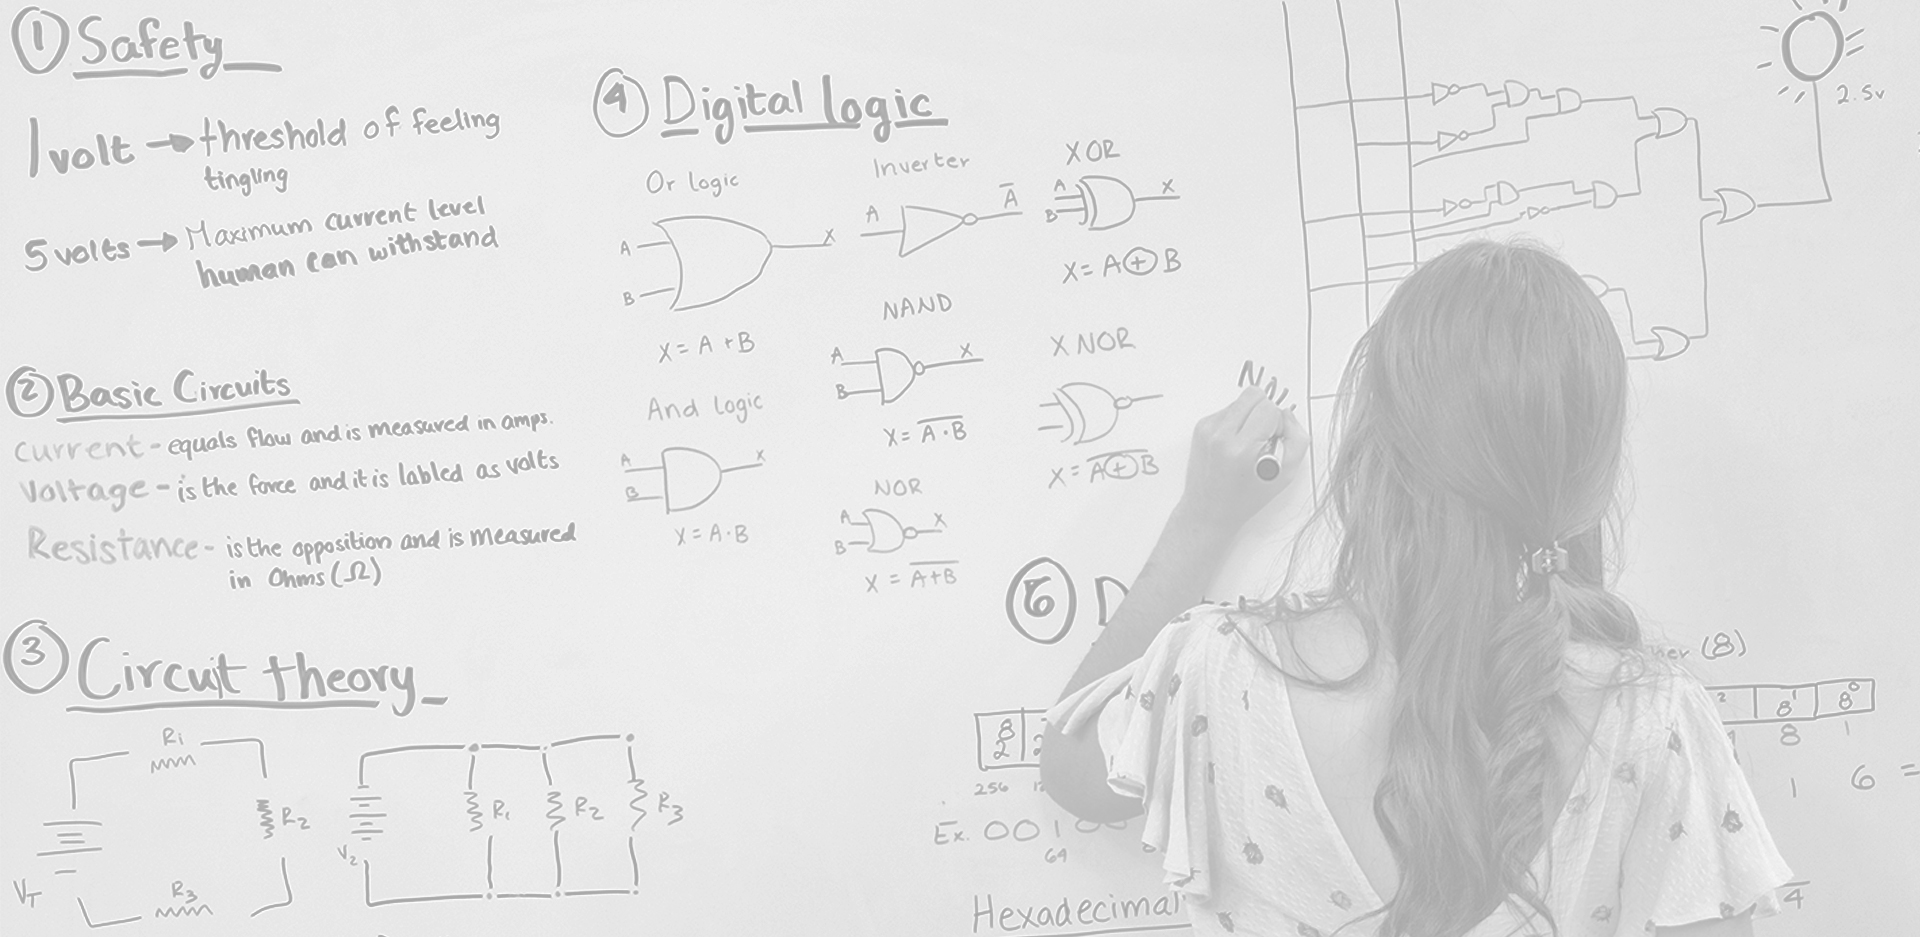 ① Safety
1 volt → threshold of feeling
tingling
5 volts → Maximum current level
human can withstand
② Basic Circuits
Current - equals flow and is measured in amps.
Voltage - is the force and it is labled as volts
Resistance - is the opposition and is measured
in Ohms (Ω)
③ Circuit theory
R1
R2
R3
VT
V2
R1
R2
R3
④ Digital logic
Or logic
A
B
X
X = A + B
And logic
A
B
X
X = A · B
Inverter
A
A̅
NAND
A
B
X
X = A̅ ̅·̅ ̅B̅
NOR
A
B
X
X = A̅+̅B̅
XOR
A
B
X
X = A ⊕ B
X NOR
X = A̅ ̅⊕̅ ̅B̅
2.5v
⑤ D
(8)
8 2
8¹ 8⁰
8 1
256
1 6 =
Ex. 001
64
4
Hexadecimal